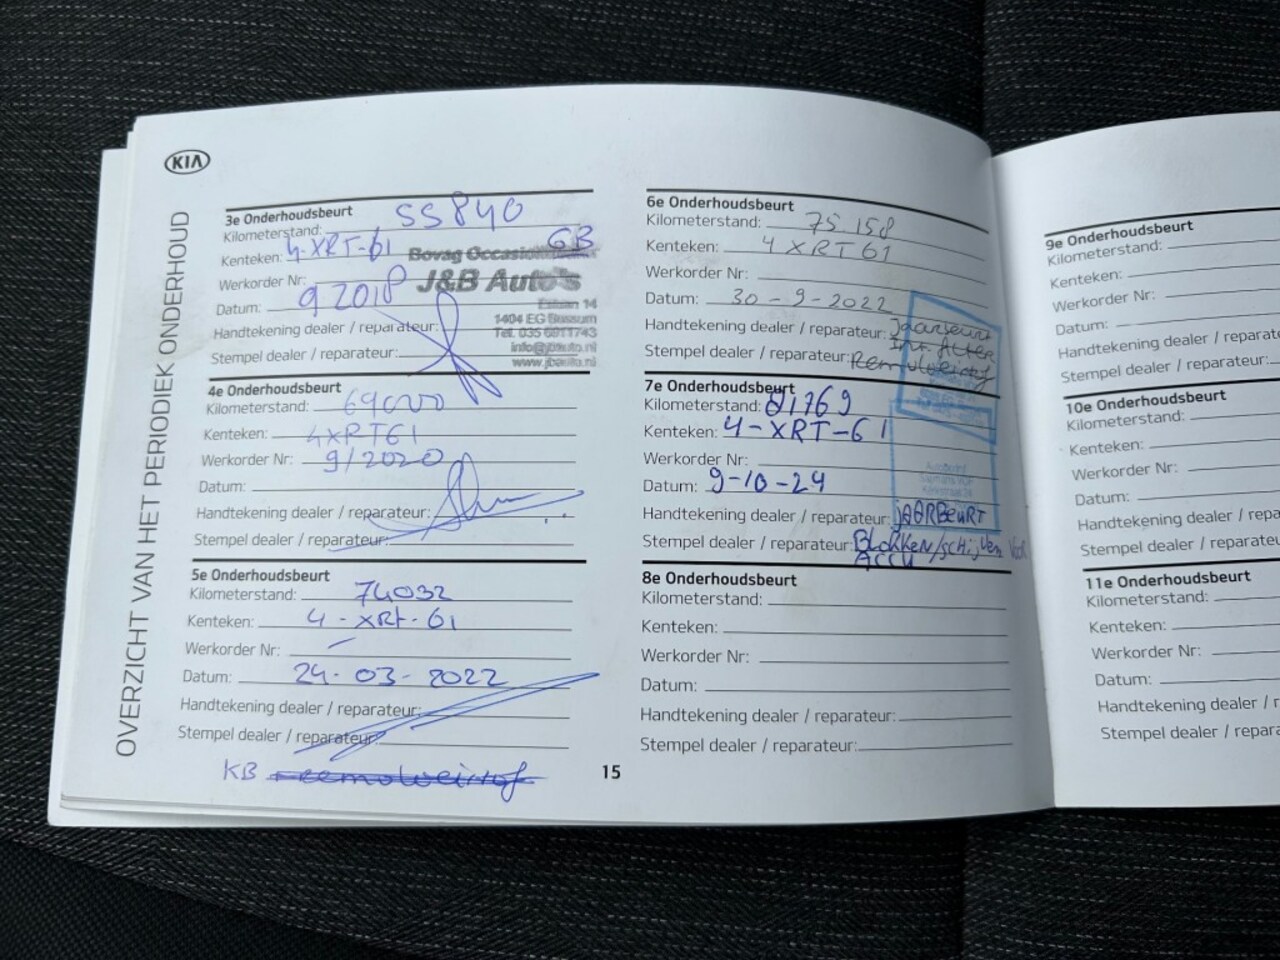 KIA
OVERZICHT VAN HET PERIODIEK ONDERHOUD
3e Onderhoudsbeurt
Kilometerstand: 55840
Kenteken: 4-XRT-61 GB
Bovag Occasion
Werkorder Nr:
J&B Auto's
Datum: 9 2018
1404 EG Bussum
Handtekening dealer / reparateur:
Tel. 035 6911743
info@jbauto.nl
Stempel dealer / reparateur:
www.jbauto.nl
4e Onderhoudsbeurt
Kilometerstand: 69000
Kenteken: 4XRT61
Werkorder Nr: 9/2020
Datum:
Handtekening dealer / reparateur:
Stempel dealer / reparateur:
5e Onderhoudsbeurt
Kilometerstand: 74032
Kenteken: 4-XRt-61
Werkorder Nr: -
Datum: 24-03-2022
Handtekening dealer / reparateur:
Stempel dealer / reparateur:
KB
15
6e Onderhoudsbeurt
Kilometerstand: 75 158
Kenteken: 4 XRT 61
Werkorder Nr:
Datum: 30-9-2022
Handtekening dealer / reparateur: Jaarbeurt
Stempel dealer / reparateur: Remvloeistof
7e Onderhoudsbeurt
Kilometerstand: 81769
Kenteken: 4-XRT-61
Werkorder Nr:
Datum: 9-10-24
Handtekening dealer / reparateur: jAARBEURT
Stempel dealer / reparateur: BLOKKEN/SCHijVEN Voor
ACCU
8e Onderhoudsbeurt
Kilometerstand:
Kenteken:
Werkorder Nr:
Datum:
Handtekening dealer / reparateur:
Stempel dealer / reparateur:
9e Onderhoudsbeurt
Kilometerstand:
Kenteken:
Werkorder Nr:
Datum:
Handtekening dealer /
Stempel dealer / repara
10e Onderhoudsbeurt
Kilometerstand:
Kenteken:
Werkorder Nr:
Datum:
Handtekening dealer /
Stempel dealer / reparateu
11e Onderhoudsbeurt
Kilometerstand:
Kenteken:
Werkorder Nr:
Datum:
Handtekening dealer / r
Stempel dealer / repara